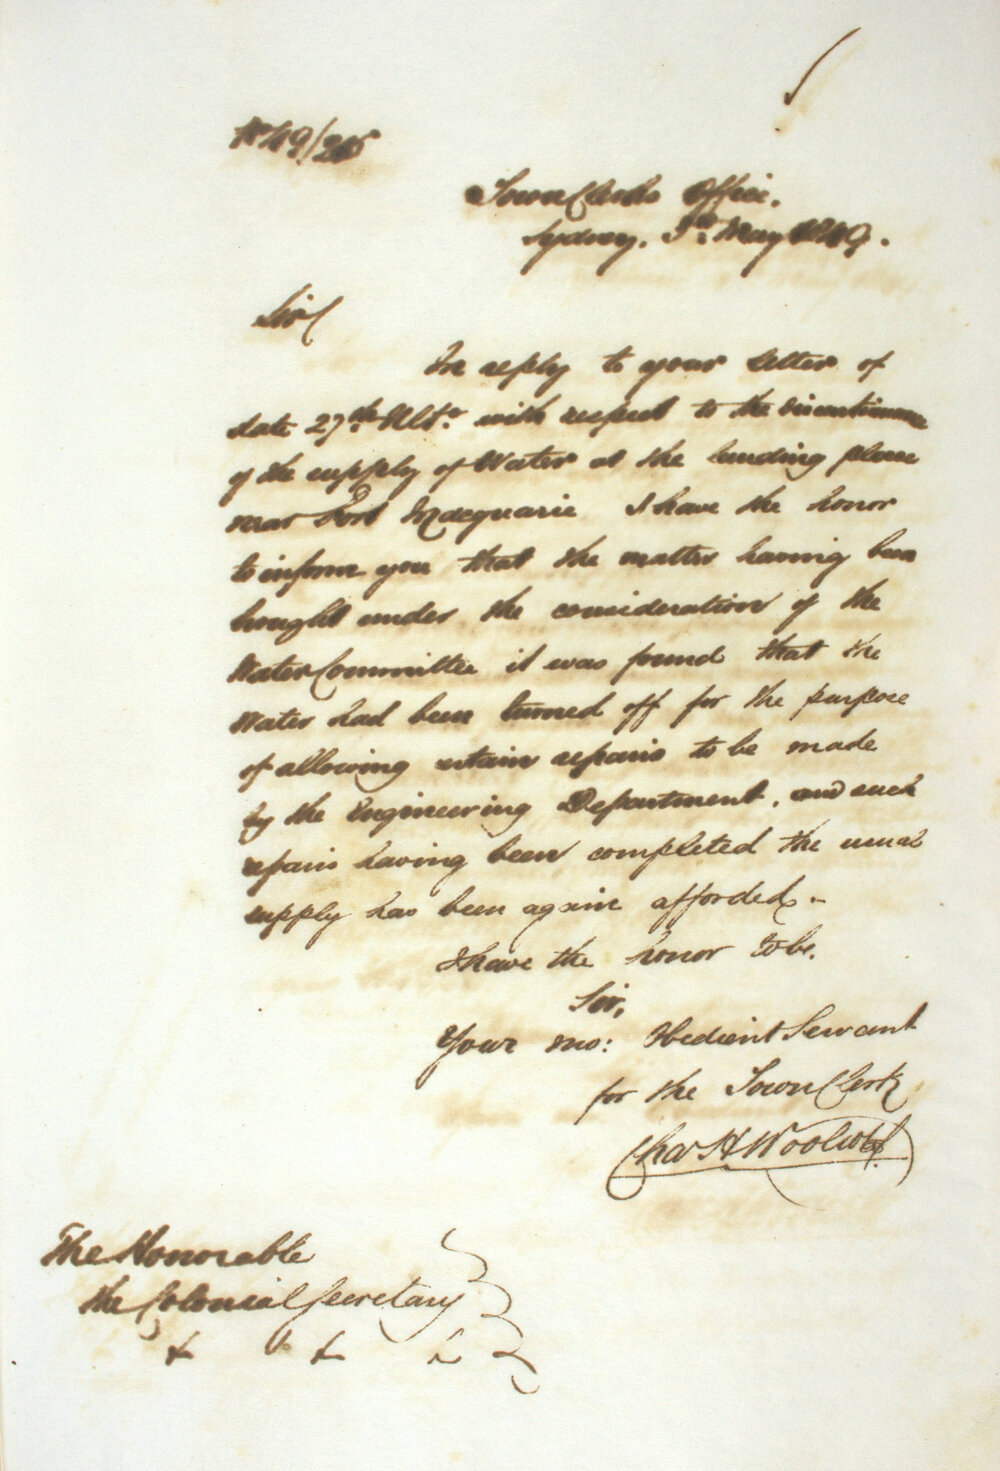 Town Clerks Office.
Sydney. 3rd May 1849.
Sir
In reply to your letter of
date 27th Ulto. with respect to the discontinuance
of the supply of Water at the landing place
near Fort Macquarie I have the honor
to inform you that the matter having been
brought under the consideration of the
Water Committee it was found that the
Water had been turned off for the purpose
of allowing certain repairs to be made
by the Engineering Department. and such
repairs having been completed the usual
supply has been again afforded.-
I have the honor to be.
Sir,
Your mo: Obedient Servant
for the Town Clerk
Chas H Woolcott
The Honorable
the Colonial Secretary